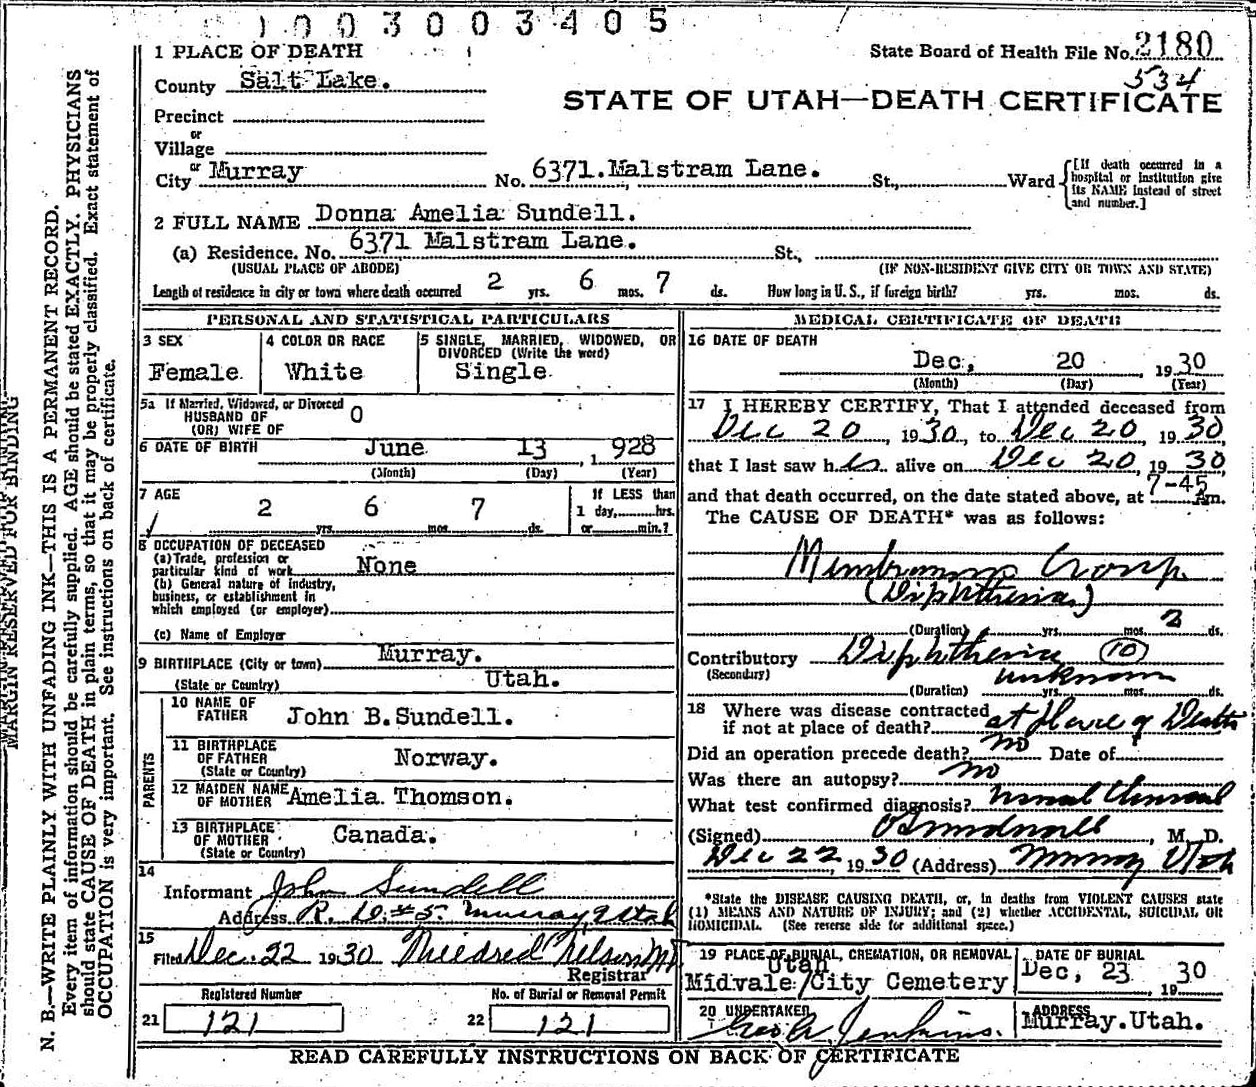 1003003405
1 PLACE OF DEATH
State Board of Health File No. 2180
534
County Salt Lake.
STATE OF UTAH—DEATH CERTIFICATE
Precinct
or
Village
or
City Murray No. 6371. Malstram Lane. St., Ward
[If death occurred in a hospital or institution give its NAME instead of street and number.]
2 FULL NAME Donna Amelia Sundell.
(a) Residence. No. 6371 Malstram Lane. St.,
(USUAL PLACE OF ABODE) (IF NON-RESIDENT GIVE CITY OR TOWN AND STATE)
Length of residence in city or town where death occurred 2 yrs. 6 mos. 7 ds. How long in U. S., if foreign birth? yrs. mos. ds.
PERSONAL AND STATISTICAL PARTICULARS
3 SEX
Female
4 COLOR OR RACE
White
5 SINGLE, MARRIED, WIDOWED, OR
DIVORCED (Write the word)
Single
5a If Married, Widowed, or Divorced
HUSBAND OF
(OR) WIFE OF
O
6 DATE OF BIRTH June 13, 1928
(Month) (Day) (Year)
7 AGE
2 yrs. 6 mos. 7 ds.
If LESS than
1 day,......hrs.
or......min.?
8 OCCUPATION OF DECEASED
(a) Trade, profession or
particular kind of work None
(b) General nature of industry,
business, or establishment in
which employed (or employer)
(c) Name of Employer
9 BIRTHPLACE (City or town) Murray.
(State or Country) Utah.
PARENTS
10 NAME OF
FATHER John B. Sundell.
11 BIRTHPLACE
OF FATHER Norway.
(State or Country)
12 MAIDEN NAME
OF MOTHER Amelia Thomson.
13 BIRTHPLACE
OF MOTHER Canada.
(State or Country)
14
Informant John Sundell
Address R. D. #5. Murray, Utah
15
Filed Dec. 22 1930 Mildred Nelson MD
Registrar
Registered Number
21 121
No. of Burial or Removal Permit
22 121
MEDICAL CERTIFICATE OF DEATH
16 DATE OF DEATH
Dec, 20 1930
(Month) (Day) (Year)
17 I HEREBY CERTIFY, That I attended deceased from
Dec 20, 1930, to Dec 20, 1930,
that I last saw her alive on Dec 20, 1930
and that death occurred, on the date stated above, at 7-45 Am.
The CAUSE OF DEATH* was as follows:
Membranous Croup
(Diphtheria)
(Duration) yrs. mos. 2 ds.
Contributory Diphtheria (10)
(Secondary) unknown
(Duration) yrs. mos. ds.
18 Where was disease contracted
if not at place of death? at Place of Death
Did an operation precede death? no Date of
Was there an autopsy? no
What test confirmed diagnosis? usual Clinical
(Signed) , M. D.
Dec 22, 1930 (Address) Murray Utah
*State the DISEASE CAUSING DEATH, or, in deaths from VIOLENT CAUSES state
(1) MEANS AND NATURE OF INJURY; and (2) whether ACCIDENTAL, SUICIDAL OR
HOMICIDAL. (See reverse side for additional space.)
19 PLACE OF BURIAL, CREMATION, OR REMOVAL
Utah
Midvale/City Cemetery
DATE OF BURIAL
Dec, 23 1930
20 UNDERTAKER
Geo A. Jenkins.
ADDRESS
Murray.Utah.
READ CAREFULLY INSTRUCTIONS ON BACK OF CERTIFICATE
MARGIN RESERVED FOR BINDING
N. B.—WRITE PLAINLY WITH UNFADING INK—THIS IS A PERMANENT RECORD.
Every item of information should be carefully supplied. AGE should be stated EXACTLY. PHYSICIANS
should state CAUSE OF DEATH in plain terms, so that it may be properly classified. Exact statement of
OCCUPATION is very important. See instructions on back of certificate.